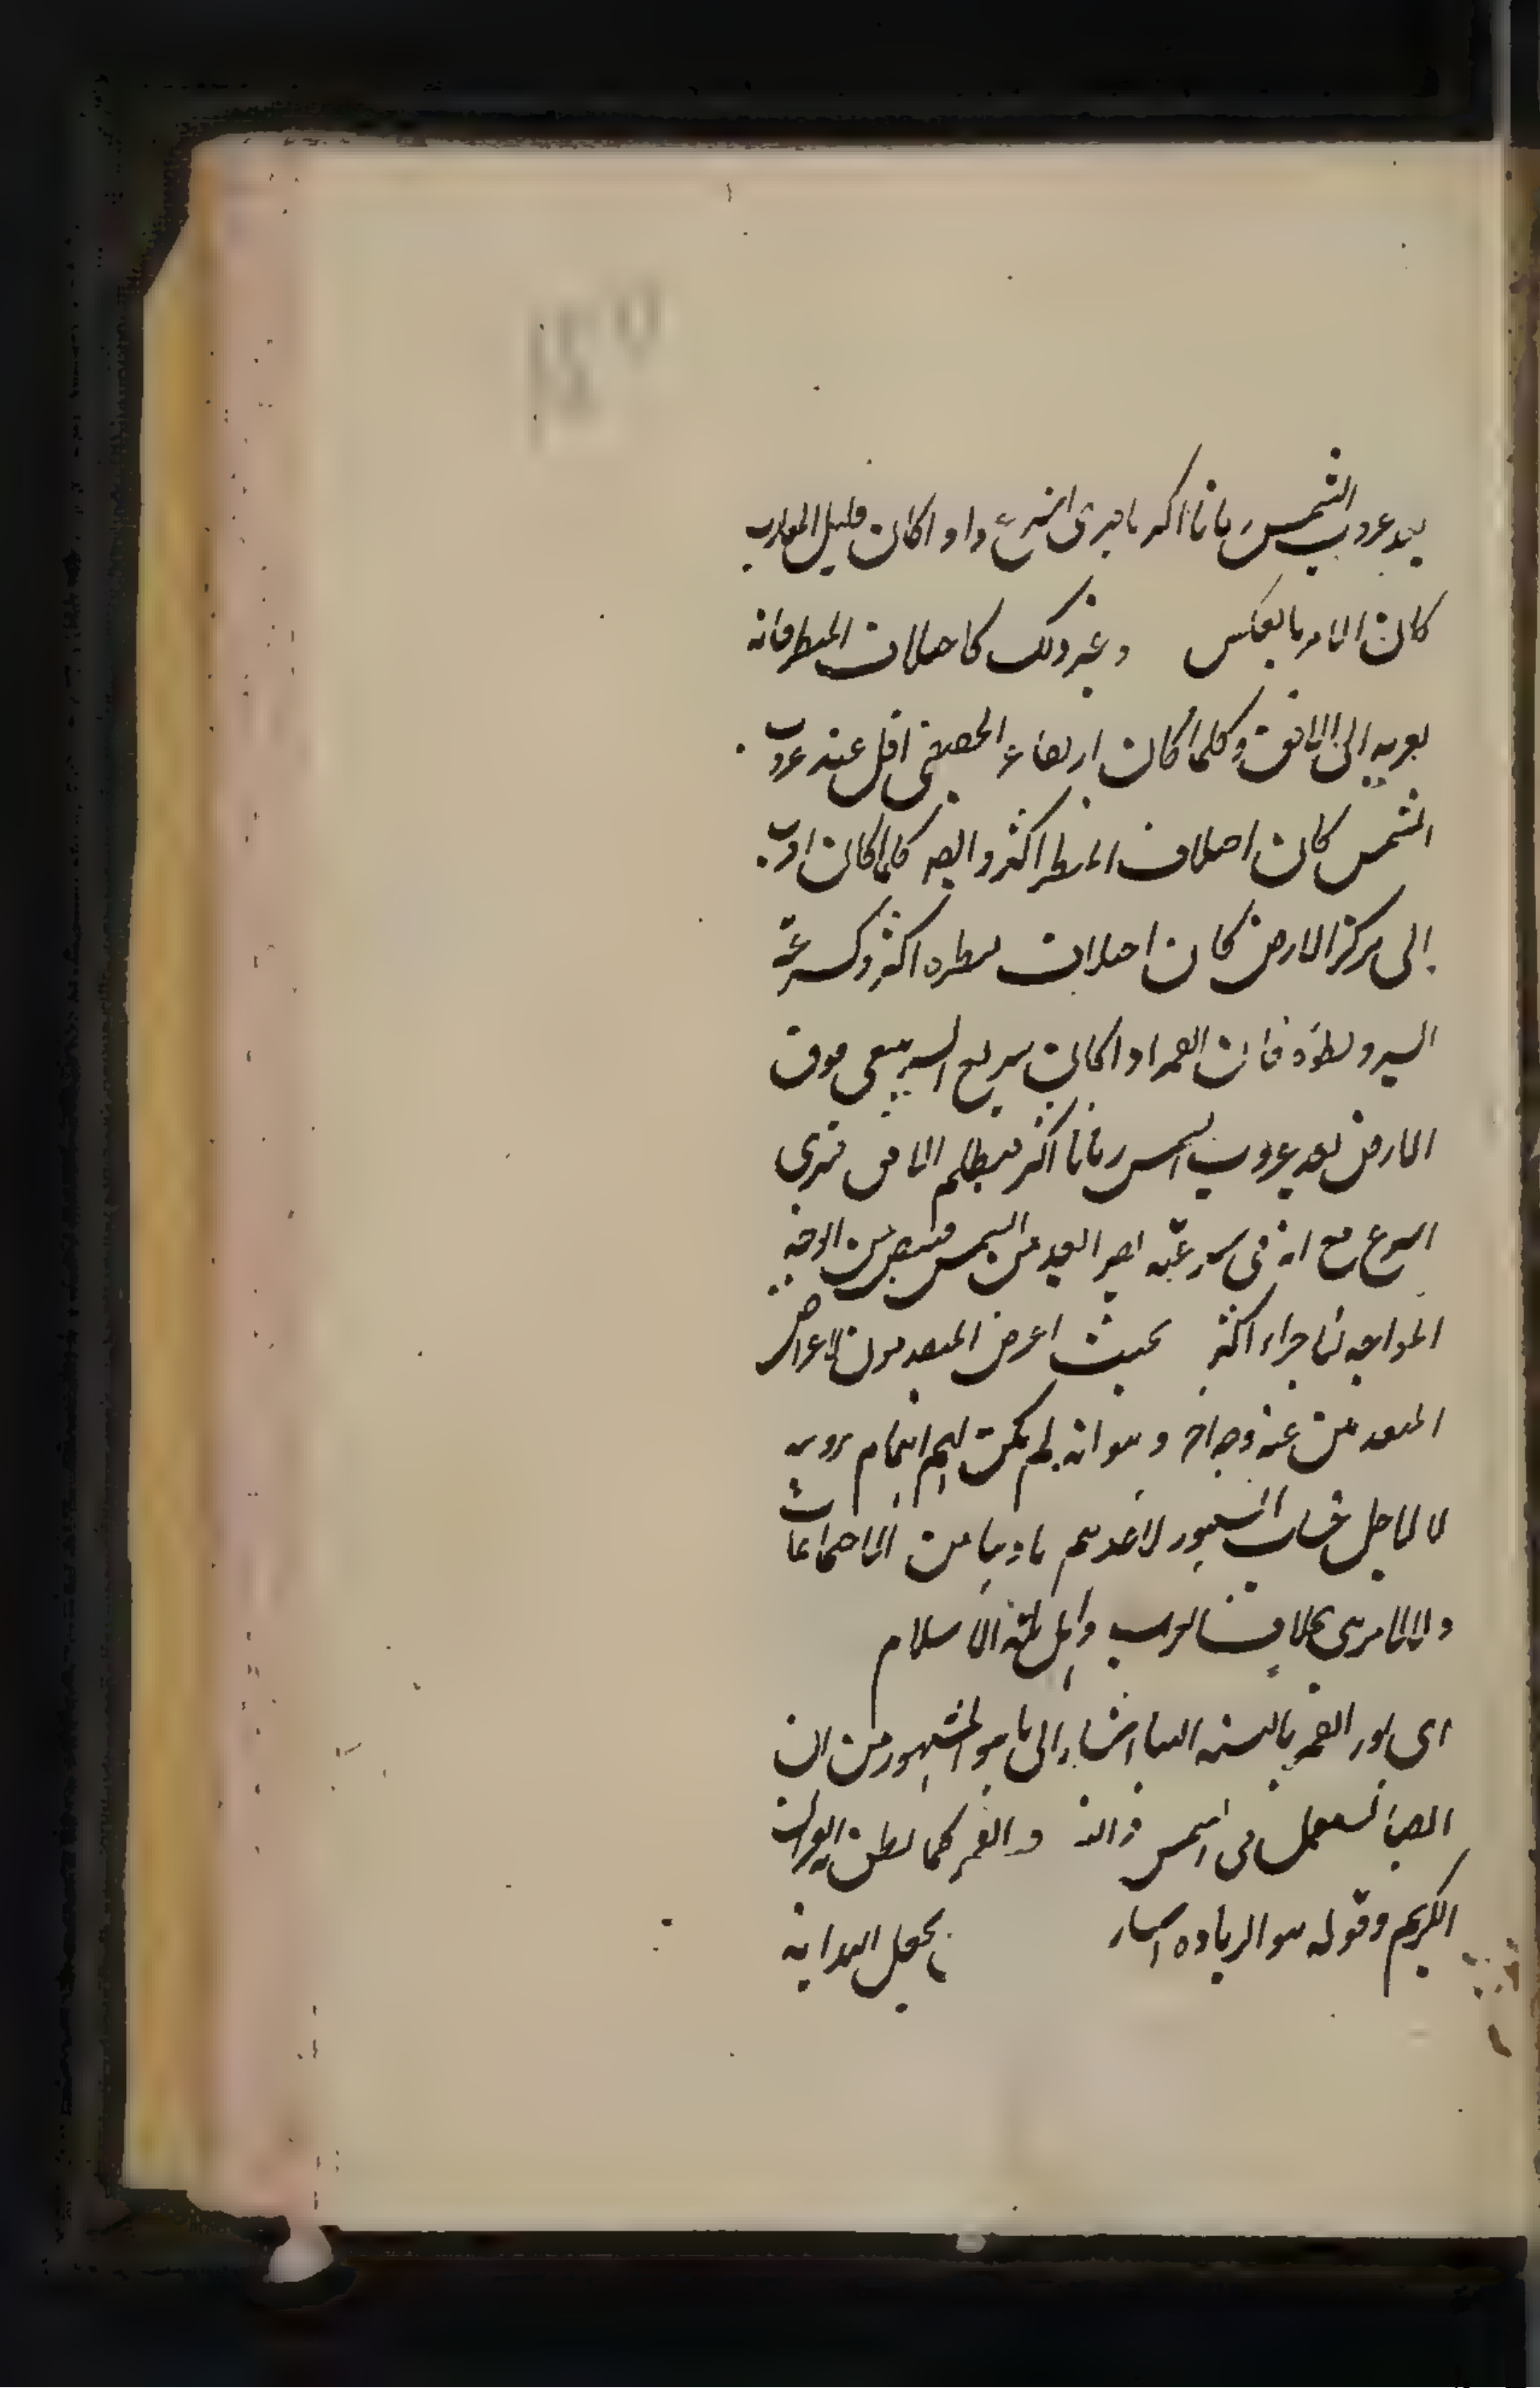 بعد غروب الشمس زمانا اكثر فيرى اسرع واذا كان قليل المغارب
كان الامر بالعكس وغير ذلك كاختلاف المنظر فانه
يقربه الى الافق وكلما كان ارتفاعه الحقيقى اقل عند غروب
الشمس كان اختلاف المنظر اكثر وايضا كلما كان اقرب
الى مركز الارض كان اختلاف منظره اكثر وكسرعة
السير وبطؤه فان القمر اذا كان سريع السير يبقى فوق
الارض بعد غروب الشمس زمانا اكثر فيظلم الافق فيرى
اسرع مع انه فى سرعته يصير ابعد من الشمس فيبصر من الوجه
المواجه لنا جزاء اكثر بحيث اعرض المتقدمون لاعراض
المتقدمين عنه وجه اخر وهو انه لم يكن لهم اهتمام برويته
لا لاجل حساب الشهور لاخذهم مباديها من الاجتماعات
ولا لامر دينى بخلاف العرب واهل ملة الاسلام
اى نور القمر بالنسبة الينا اشار الى ما هو المشهور من ان
الضياء يستعمل فى الشمس والنور فى القمر كما نطق به القران
الكريم وقوله هو الزيادة اشار يجعل البداية